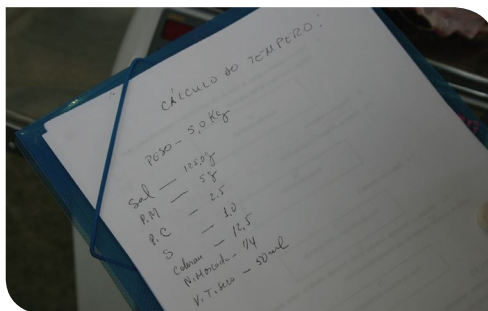 CÁLCULO DO TEMPERO:
PESO - 5,0 Kg
Sal — 125,0g
P.M — 5g
P.C — 2.5
S — 1.0
— 12,5
N. Moscada - 1/4
V. T. Seco - 50 ml